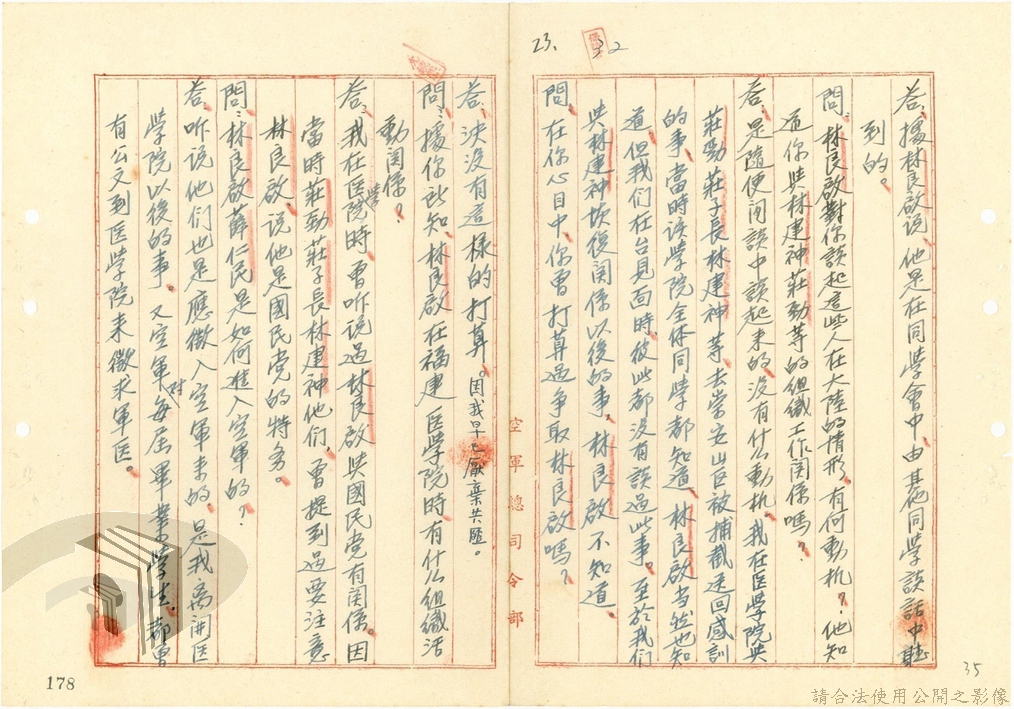 23.
32
答、據林良啟説、他是在同學會中、由其他同學談話中聽
到的。
問、林良啟對你談起這些人在大陸的情形、有何動机？他知
道你與林建神莊勁等的組織工作関係嗎？
答、是隨便间談中談起来的、没有什么動机、我在医學院與
莊勁莊子長林建神等、去崇安山区被捕截送回感訓
的事、當時該学院全体同学都知道、林良啟当然也知
道、但我们在台見面時、彼此都没有談過此事。至於我们
與林建神坎後関係以後的事、林良啟不知道、
問、在你心目中、你曾打算過争取林良啟嗎？
空軍總司令部
答、決没有這樣的打算。因我早已厭棄共匪。
問、據你所知、林良啟在福建医学院時有什么組織活
動関係？
答、我在医學院時、曾听说過林良啟與國民党有関係。因
當時莊勁莊子長林建神他们、曾提到過要注意
林良啟、说他是國民党的特务。
問、林良啟薛仁民是如何進入空軍的？
答、听说他们也是應徵入空軍来的、是我离開医
学院以後的事。又空軍对每屆畢業学生、都曾
有公文到医学院来徵求軍医。
178
35
請合法使用公開之影像